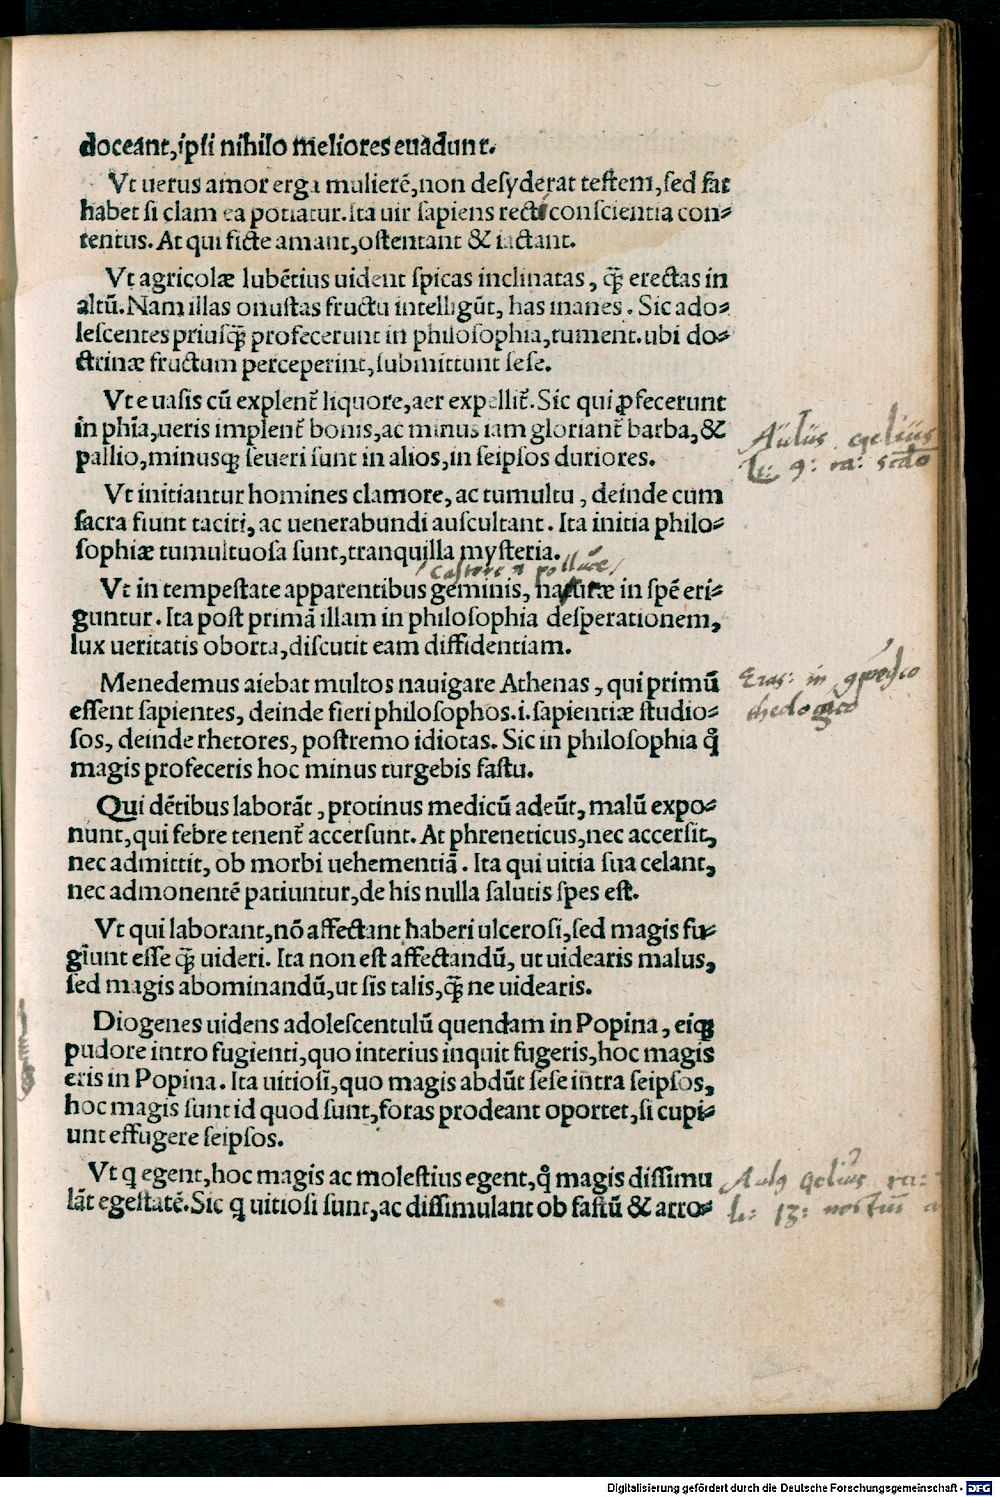 doceant,ipſi nihilo meliores euadunt.
Vt uerus amor erga mulierē,non deſyderat teſtem,ſed ſat
habet ſi clam ea potiatur.Ita uir ſapiens recti conſcientia con⸗
tentus. At qui ficte amant,oſtentant & iactant.
Vt agricolæ lubētius uident ſpicas inclinatas, q̃ erectas in
altũ.Nam illas onuſtas fructu intelligũt, has inanes. Sic ado⸗
leſcentes priuſq̃ profecerunt in philoſophia,tument.ubi do⸗
ctrinæ fructum perceperint,ſubmittunt ſeſe.
Vt e uaſis cũ explent᷑ liquore,aer expellit᷑.Sic qui ꝓfecerunt
in phīa,ueris implent᷑ bonis,ac minus iam gloriant᷑ barba,&
pallio,minusqꝫ ſeueri ſunt in alios,in ſeipſos duriores.
Aulus gelius
li: 9: ca: scdo
Vt initiantur homines clamore, ac tumultu, deinde cum
ſacra fiunt taciti, ac uenerabundi auſcultant. Ita initia philo⸗
ſophiæ tumultuoſa ſunt,tranquilla myſteria.
/castore ⁊ polluce/
Vt in tempeſtate apparentibus geminis, naturæ in ſpē eri⸗
guntur. Ita poſt primā illam in philoſophia deſperationem,
lux ueritatis oborta,diſcutit eam diffidentiam.
Menedemus aiebat multos nauigare Athenas, qui primũ
eſſent ſapientes, deinde fieri philoſophos.i.ſapientiæ ſtudio⸗
ſos, deinde rhetores, poſtremo idiotas. Sic in philoſophia q̊
magis profeceris hoc minus turgebis faſtu.
Eras: in
theologico
Qui dētibus laborāt, protinus medicũ adeũt, malũ expo⸗
nunt,qui febre tenent᷑ accerſunt. At phreneticus,nec accerſit,
nec admittit, ob morbi uehementiā. Ita qui uitia ſua celant,
nec admonentē patiuntur,de his nulla ſalutis ſpes eſt.
Vt qui laborant,nō affectant haberi ulceroſi,ſed magis fu⸗
giunt eſſe q̃ uideri. Ita non eſt affectandũ, ut uidearis malus,
ſed magis abominandũ,ut ſis talis,q̃ ne uidearis.
Diogenes uidens adoleſcentulũ quendam in Popina, eiqꝫ
pudore intro fugienti,quo interius inquit fugeris,hoc magis
eris in Popina. Ita uitioſi,quo magis abdũt ſeſe intra ſeipſos,
hoc magis ſunt id quod ſunt,foras prodeant oportet,ſi cupi⸗
unt effugere ſeipſos.
Vt q egent,hoc magis ac moleſtius egent,q̊ magis diſſimu
lāt egeſtatē.Sic q uitioſi ſunt,ac diſſimulant ob faſtũ & arro⸗
Aulꝰ gelius
li: 13: noctiũ
Digitalisierung gefördert durch die Deutsche Forschungsgemeinschaft - DFG